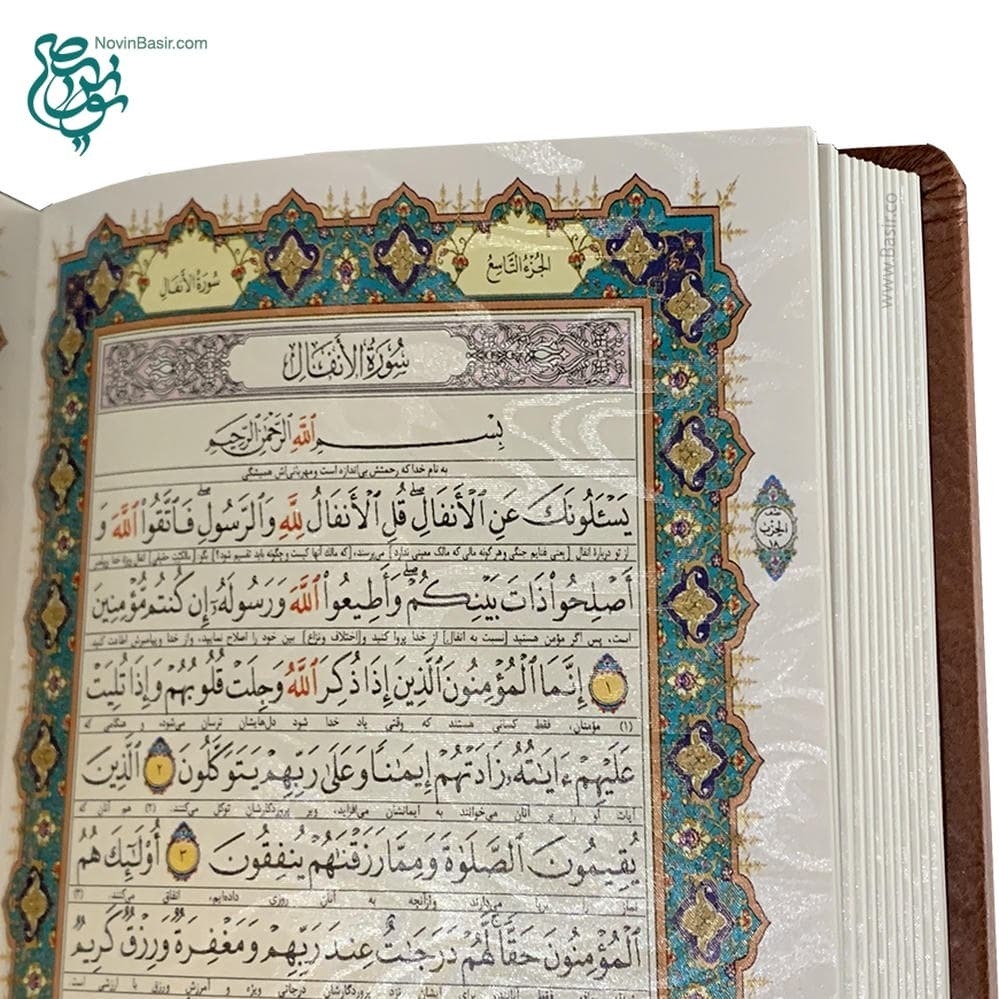 NovinBasir.com
سُورَةُ الْأَنْفَالِ
الجُزْءُ التَّاسِعُ
www.Basir.co
سُورَةُ الْأَنْفَالِ
بِسْمِ ٱللَّهِ ٱلرَّحْمَٰنِ ٱلرَّحِيمِ
به نام خدا که رحمتش بی‌اندازه است و مهربانی‌اش همیشگی
يَسْـَٔلُونَكَ عَنِ ٱلْأَنفَالِ ۖ قُلِ ٱلْأَنفَالُ لِلَّهِ وَٱلرَّسُولِ ۖ فَٱتَّقُوا۟ ٱللَّهَ وَ
الحِزْب
١٨
از تو دربارهٔ انفال [یعنی غنایم جنگی و هر گونه مالی که مالک معینی ندارد] می‌پرسند، [که مالک آنها کیست و چگونه باید تقسیم شود؟] بگو: [مالکیتِ حقیقیِ] انفال ویژه خدا و پیامبر
أَصْلِحُوا۟ ذَاتَ بَيْنِكُمْ ۖ وَأَطِيعُوا۟ ٱللَّهَ وَرَسُولَهُۥٓ إِن كُنتُم مُّؤْمِنِينَ
است، پس اگر مؤمن هستید [نسبت به انفال] از خدا پروا کنید و [اختلاف و نزاع] بین خود را اصلاح نمایید، و از خدا و پیامبرش اطاعت کنید
١ إِنَّمَا ٱلْمُؤْمِنُونَ ٱلَّذِينَ إِذَا ذُكِرَ ٱللَّهُ وَجِلَتْ قُلُوبُهُمْ وَإِذَا تُلِيَتْ
(۱) مؤمنان، فقط کسانی هستند که وقتی یاد خدا شود دل‌هایشان ترسان می‌شود، و هنگامی که
عَلَيْهِمْ ءَايَـٰتُهُۥ زَادَتْهُمْ إِيمَـٰنًا وَعَلَىٰ رَبِّهِمْ يَتَوَكَّلُونَ ٢ ٱلَّذِينَ
آیات او را بر آنان می‌خوانند به ایمانشان می‌افزاید، و بر پروردگارشان توکل می‌کنند. (۲) هم آنان که
يُقِيمُونَ ٱلصَّلَوٰةَ وَمِمَّا رَزَقْنَـٰهُمْ يُنفِقُونَ ٣ أُو۟لَـٰٓئِكَ هُمُ
نماز را برپا می‌دارند و از آنچه به آنان روزی داده‌ایم، انفاق می‌کنند. (۳)
ٱلْمُؤْمِنُونَ حَقًّا ۚ لَّهُمْ دَرَجَـٰتٌ عِندَ رَبِّهِمْ وَمَغْفِرَةٌ وَرِزْقٌ كَرِيمٌ
فقط آنانند، برای ایشان نزد پروردگارشان درجاتی ویژه و آمرزش و رزق با ارزشی است